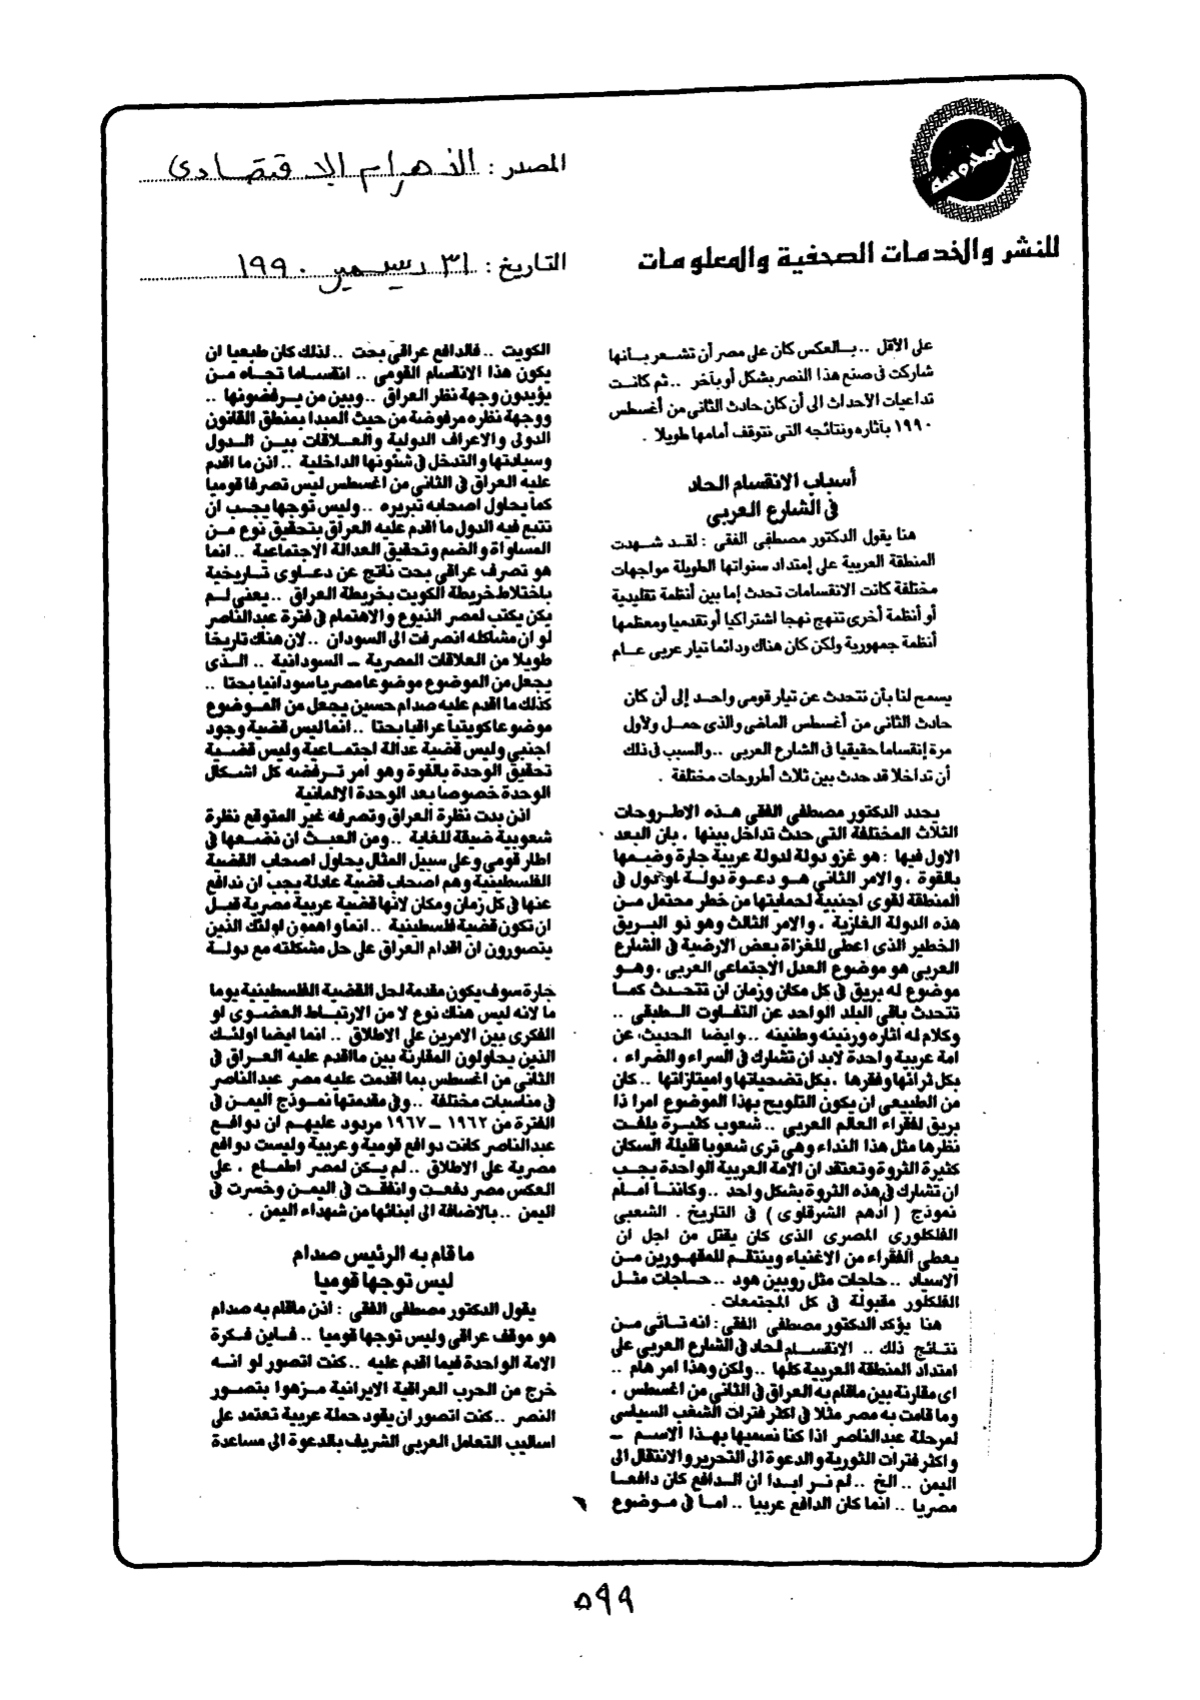 المحروسة
للنشر والخدمات الصحفية والمعلومات
المصدر : الأهرام الاقتصادى
التاريخ : ٣١ ديسمبر ١٩٩٠
على الأقل .. بالعكس كان على مصر أن تشعر بأنها
شاركت فى صنع هذا النصر بشكل أو بآخر .. ثم كانت
تداعيات الاحداث الى أن كان حادث الثانى من أغسطس
١٩٩٠ بآثاره ونتائجه التى نتوقف أمامها طويلا .
أسباب الانقسام الحاد
فى الشارع العربى
هنا يقول الدكتور مصطفى الفقى : لقد شهدت
المنطقة العربية على إمتداد سنواتها الطويلة مواجهات
مختلفة كانت الانقسامات تحدث إما بين أنظمة تقليدية
أو أنظمة أخرى تنهج نهجا اشتراكيا أو تقدميا ومعظمها
أنظمة جمهورية ولكن كان هناك ودائما تيار عربى عام
يسمح لنا بأن نتحدث عن تيار قومى واحد إلى أن كان
حادث الثانى من أغسطس الماضى والذى حمل ولاول
مرة إنقساما حقيقيا فى الشارع العربى .. والسبب فى ذلك
أن تداخلا قد حدث بين ثلاث أطروحات مختلفة .
يحدد الدكتور مصطفى الفقى هذه الاطروحات
الثلاث المختلفة التى حدث تداخل بينها ، بأن البعد
الاول فيها : هو غزو دولة لدولة عربية جارة وضمها
بالقوة ، والامر الثانى هو دعوة دولة او دول فى
المنطقة لقوى اجنبية لحمايتها من خطر محتمل من
هذه الدولة الغازية . والامر الثالث وهو ذو البريق
الخطير الذى اعطى للغزاة بعض الارضية فى الشارع
العربى هو موضوع العدل الاجتماعى العربى ، وهو
موضوع له بريق فى كل مكان وزمان ان تتحدث كما
تتحدث باقى البلد الواحد عن التفاوت الطبقى ..
وكلام له اثاره ورنينه وطنينه .. وايضا الحديث عن
امة عربية واحدة لابد ان تشارك فى السراء والضراء ،
بكل ثرائها وفقرها ، بكل تضحياتها وامتيازاتها .. كان
من الطبيعى ان يكون التلويح بهذا الموضوع امرا ذا
بريق لفقراء العالم العربى .. شعوب كثيرة بلغت
نظرها مثل هذا النداء وهى ترى شعوبا قليلة السكان
كثيرة الثروة وتعتقد ان الامة العربية الواحدة يجب
ان تشارك فى هذه الثروة بشكل واحد .. وكاننا امام
نموذج ( أدهم الشرقاوى ) فى التاريخ . الشعبى
الفلكلورى المصرى الذى كان يقتل من اجل ان
يعطى الفقراء من الاغنياء وينتقم للمقهورين من
الاسياد .. حاجات مثل روبين هود .. حاجات مثل
الفلكلور مقبولة فى كل المجتمعات .
هنا يؤكد الدكتور مصطفى الفقى : انه تاتى من
نتائج ذلك .. الانقسام لحاد فى الشارع العربى على
امتداد المنطقة العربية كلها .. ولكن وهذا امر هام ..
اى مقارنة بين ماقام به العراق فى الثانى من اغسطس ،
وماقامت به مصر مثلا فى اكثر فترات الشغب السياسى
لمرحلة عبدالناصر اذا كنا نسميها بهذا الاسم ــ
واكثر فترات الثورية والدعوة الى التحرير والانتقال الى
اليمن .. الخ .. لم نر ابدا ان الدافع كان دافعا
مصريا .. انما كان الدافع عربيا .. اما فى موضوع
الكويت .. فالدافع عراقى بحت .. لذلك كان طبعيا ان
يكون هذا الانقسام القومى .. انقساما تجاه من
يؤيدون وجهة نظر العراق .. وبين من يرفضونها ..
ووجهة نظره مرفوضة من حيث المبدا بمنطق القانون
الدولى والاعراف الدولية والعلاقات بين الدول
وسيادتها والتدخل فى شئونها الداخلية .. اذن ما اقدم
عليه العراق فى الثانى من اغسطس ليس تصرفا قوميا
كما يحاول اصحابه تبريره .. وليس توجها يجب ان
تتبع فيه الدول ما اقدم عليه العراق بتحقيق نوع من
المساواة والضم وتحقيق العدالة الاجتماعية .. انما
هو تصرف عراقى بحت ناتج عن دعاوى تاريخية
باختلاط خريطة الكويت بخريطة العراق .. يعنى لم
يكن يكتب لمصر الذيوع والاهتمام فى فترة عبدالناصر
لو ان مشاكله انصرفت الى السودان .. لان هناك تاريخا
طويلا من العلاقات المصرية ــ السودانية .. الذى
يجعل من الموضوع موضوعا مصريا سودانيا بحتا ..
كذلك ما اقدم عليه صدام حسين يجعل من الموضوع
موضوعا كويتيا عراقيا بحتا .. انما ليس قضية وجود
اجنبى وليس قضية عدالة اجتماعية وليس قضية
تحقيق الوحدة بالقوة وهو امر ترفضه كل اشكال
الوحدة خصوصا بعد الوحدة الالمانية
اذن بدت نظرة العراق وتصرفه غير المتوقع نظرة
شعوبية ضيقة للغاية .. ومن العبث ان نضعها فى
اطار قومى وعلى سبيل المثال يحاول اصحاب القضية
الفلسطينية وهم اصحاب قضية عادلة يجب ان ندافع
عنها فى كل زمان ومكان لانها قضية عربية مصرية قبل
ان تكون قضية فلسطينية .. انما واهمون اولئك الذين
يتصورون ان اقدام العراق على حل مشكلته مع دولة
جارة سوف يكون مقدمة لحل القضية الفلسطينية يوما
ما لانه ليس هناك نوع لا من الارتباط العضوى او
الفكرى بين الامرين على الاطلاق .. انما ايضا اولئك
الذين يحاولون المقارنة بين مااقدم عليه العراق فى
الثانى من اغسطس بما اقدمت عليه مصر عبدالناصر
فى مناسبات مختلفة .. وفى مقدمتها نموذج اليمن فى
الفترة من ١٩٦٢ ــ ١٩٦٧ مردود عليهم ان دوافع
عبدالناصر كانت دوافع قومية وعربية وليست دوافع
مصرية على الاطلاق .. لم يكن لمصر اطماع ، على
العكس مصر دفعت وانفقت فى اليمن وخسرت فى
اليمن .. بالاضافة الى ابنائها من شهداء اليمن .
ما قام به الرئيس صدام
ليس توجها قوميا
يقول الدكتور مصطفى الفقى : اذن ماقام به صدام
هو موقف عراقى وليس توجها قوميا .. فاين فكرة
الامة الواحدة فيما اقدم عليه .. كنت اتصور لو انه
خرج من الحرب العراقية الايرانية مزهوا بتصور
النصر .. كنت اتصور ان يقود حملة عربية تعتمد على
اساليب التعامل العربى الشريف بالدعوة الى مساعدة
٦
٥٩٩